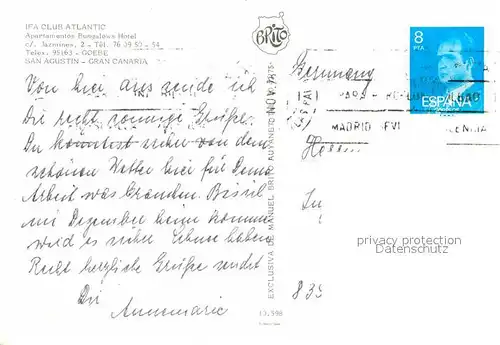 IFA CLUB ATLANTIC
Apartamentos Bungalows Hotel
c/. Jazmines, 2 - Tél. 76 39 52 - 54
Telex. 95163 - GOEBE
SAN AGUSTIN - GRAN CANARIA
BRITO
Von hier aus sende ich
Dir recht sonnige Grüße.
Du könntest sicher von dem
schönen Wetter hier für Deine
Arbeit was brauchen. Bis
im Dezember heim komme
wird es sicher Schnee haben
Recht herzliche Grüße sendet
Dir
Annemarie
EXCLUSIVA DE MANUEL BRITO AUYANET
13.598
Germany
Herrn
8 PTA
ESPAÑA
MADRID
privacy protection
Datenschutz